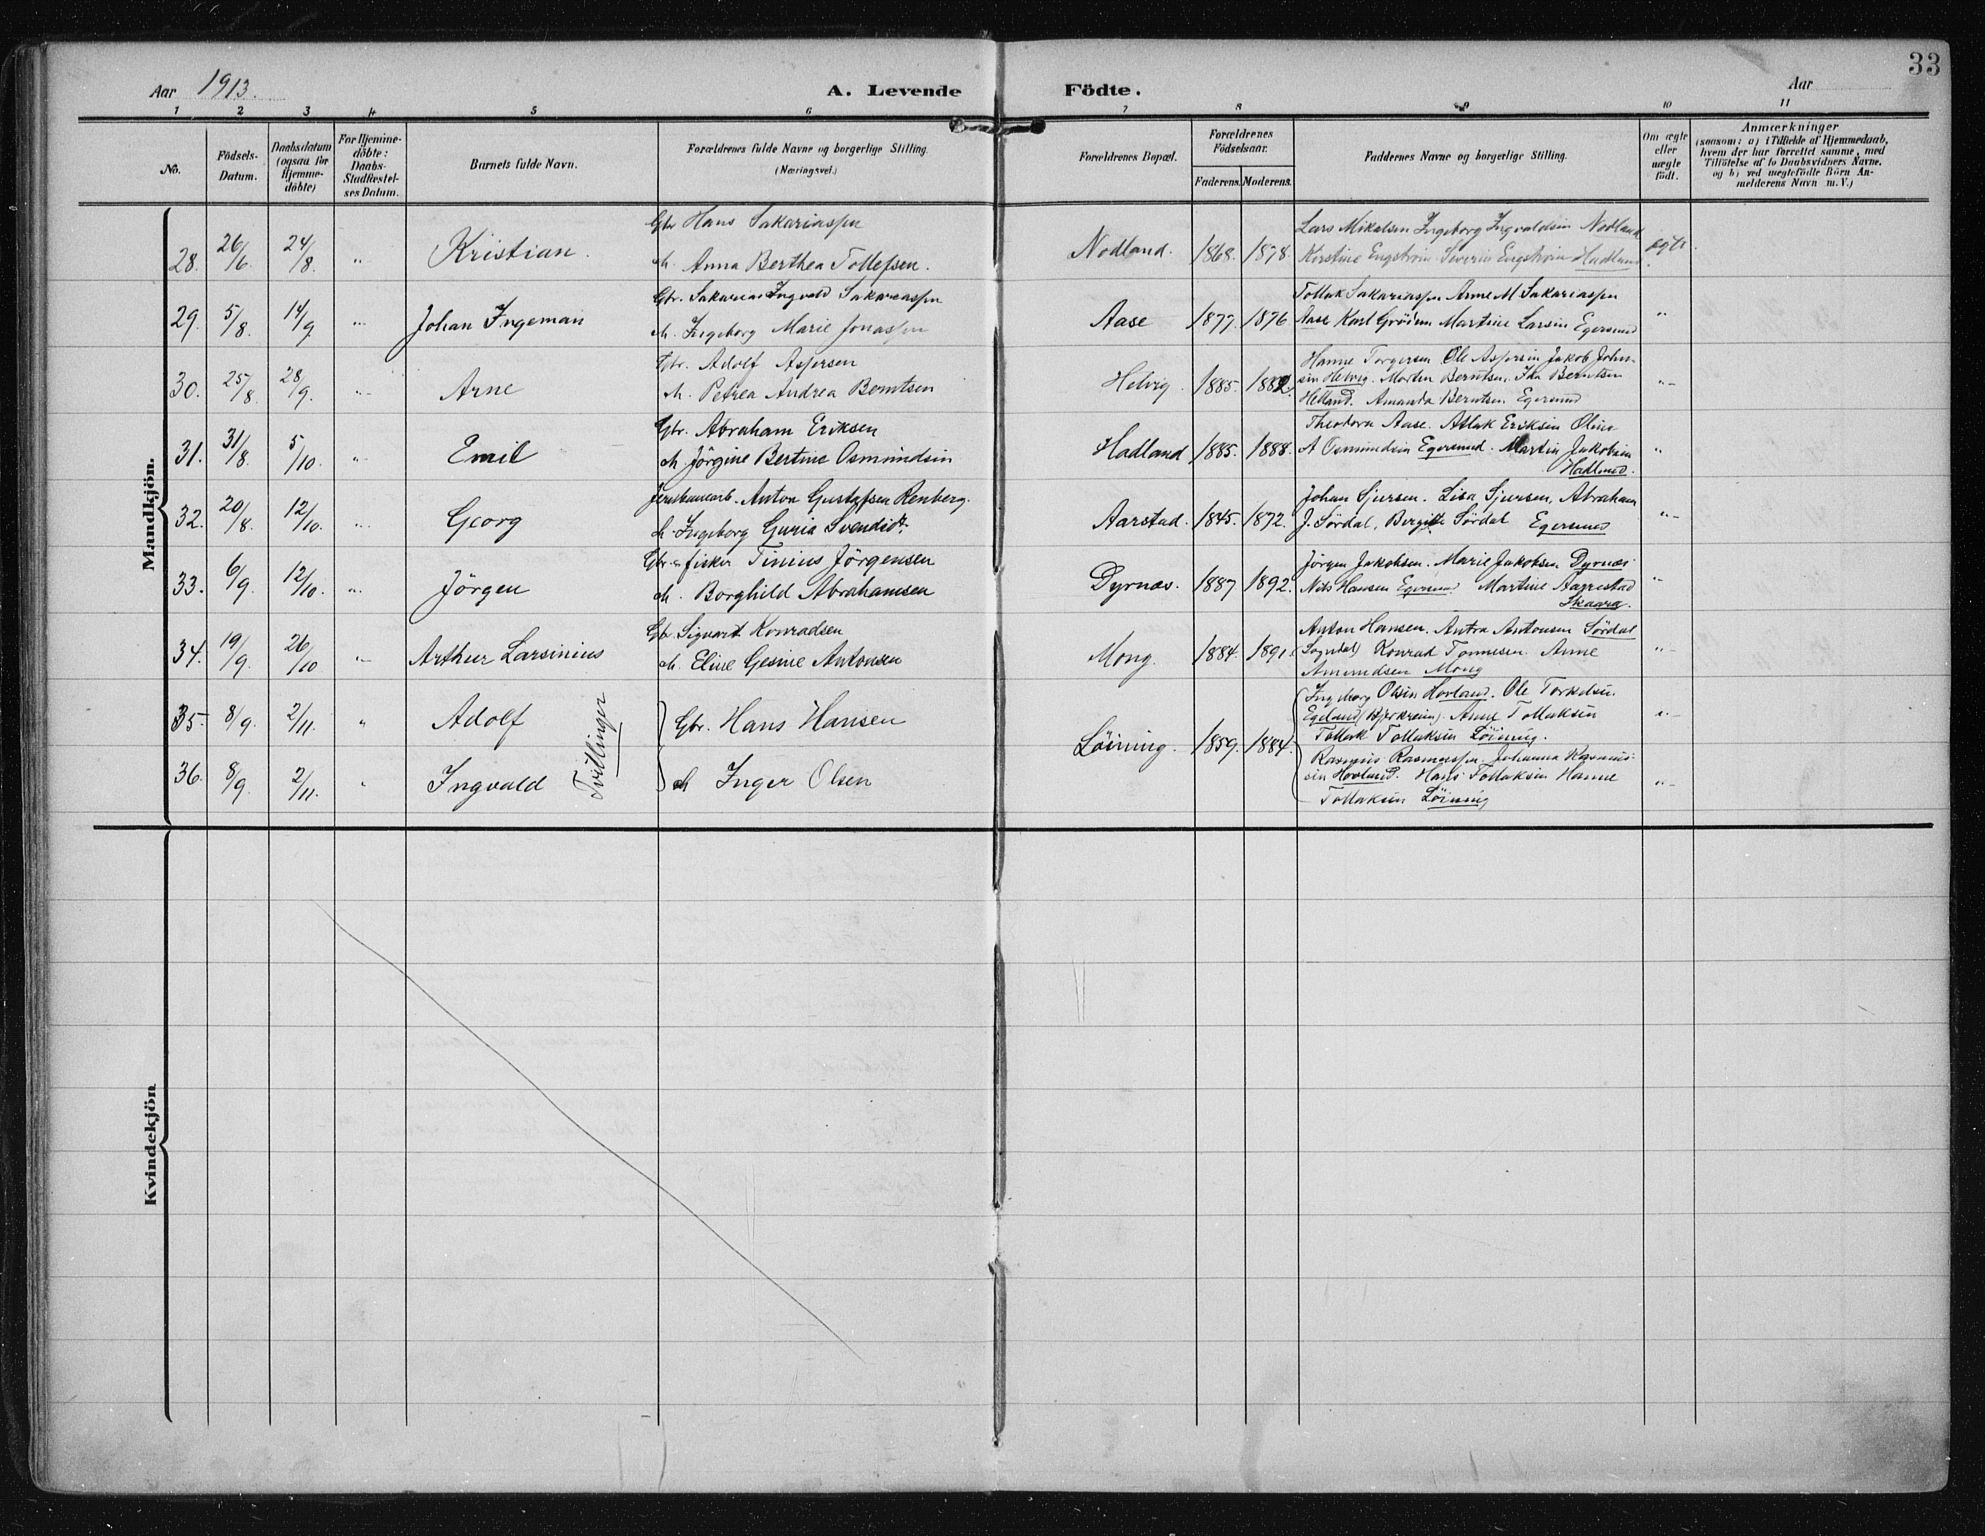 33
Aar 1913.
A. Levende Födte.
Aar
1 2 3 4 5 6 7 8 9 10 11
No.
Födsels-Datum.
Daabsdatum (ogsaa for Hjemme-döbte)
For Hjemme-döbte: Daabs-Stadfæstel-ses Datum.
Barnets fulde Navn.
Forældrenes fulde Navne og borgerlige Stilling. (Næringsvei.)
Forældrenes Bopæl.
Forældrenes Födselsaar.
Faderens. Moderens.
Faddernes Navne og borgerlige Stilling.
Om ægte eller uægte födt.
Anmærkninger
(saasom: a) i Tilfælde af Hjemmedaab, hvem der har forrettet samme, med Tilföielse af to Daabsvidners Navne, og b) ved uegtefödte Börn An-melderens Navn m. V.)
Mandkjön.
28. 26/6 24/8 " Kristian. Gbr Hans Sakariassen
M. Anna Berthea Tollefsen. Nodland. 1868. 1878. Lars Mikalsen Ingeborg Ingvaldsen Nodland
Kirstine Engström Severin Engström Hadland ægte.
29. 5/8 14/9 " Johan Ingeman Gbr. Sakarias Ingvald Sakariassen
M. Ingeborg Marie Jonassen Aase 1877. 1876 Tollak Sakariassen Arne M Sakariassen
Aase Karl Grödem Martine Larsen Egersund "
30. 25/8 28/9 " Arne Gbr. Adolf Aspersen
M. Petrea Andrea Berntsen Helvig. 1885. 1882. Hanne Torgersen Ole Aspersen Jakob John-
sen Helvig. Morten Berntsen. Berntsen
Helland. Amanda Berntsen Egersund "
31. 31/8 5/10 " Emil Gbr. Abraham Eriksen
M Jörgine Bertine Osmundsen Hadland 1885. 1888. Theodora Aase. Atlak Eriksen Oline
A Osmundsen Egersund. Martin Jakobsen
Hadland. "
32. 20/8 12/10. " Georg Jernbanearb. Anton Gustafsen Renberg.
M. Ingeborg Guria Svendsdt. Aarstad. 1845. 1872. Johan Sjursen. Lisa Sjursen, Abraham
J. Sördal, Bergitte Sördal Egersund "
33. 6/9. 12/10. " Jörgen Gbr. fisker Tinius Jörgensen
M. Borghild Abrahamsen Dyrnæs. 1887 1892. Jörgen Jakobsen. Marie Jakobsen Dyrnæs
Nils Hansen Egersund Martine Aarrestad
Skaara. "
34. 19/9. 26/10 " Arthur Larsinius Gbr Sigvart Konradsen
M. Eline Gesine Antonsen Mong. 1884. 1891. Anton Hansen. Antra Antonsen Sördal
(Sogndal) Konrad Tönnesen. Anne
Amundsen Mong "
35. 8/9. 2/11. " Adolf Gbr. Hans Hansen
Ingeborg Olsen Hovland. Ole Torkelsen
Egeland (Bjerkreim). Anne Tollaksen
Tollak Tollaksen Löining. "
Tvillinger
Löining. 1859. 1884.
36. 8/9. 2/11. " Ingvald M Inger Olsen
Rasmus Rasmussen Johanna Rasmus-
sen Hovland. Hans Tollaksen Hanne
Tollaksen Löining "
Kvindekjön